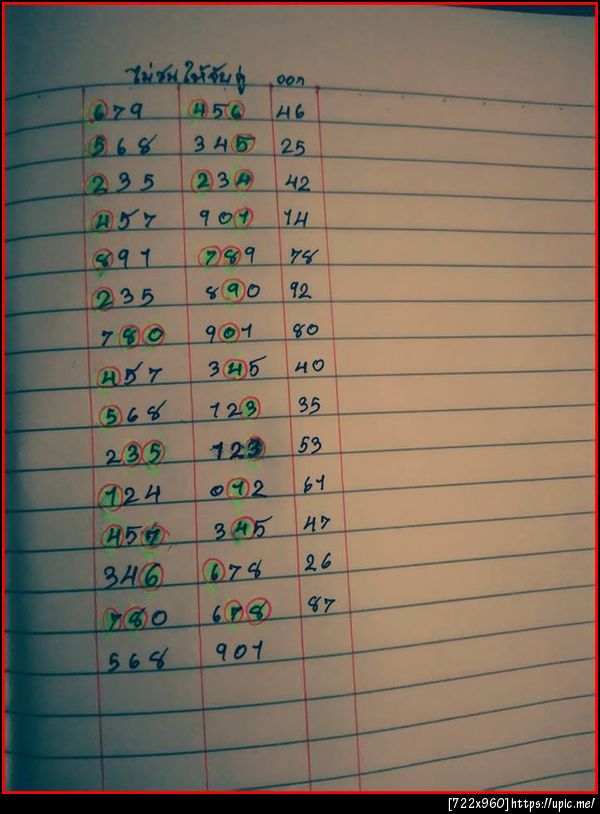 ไม่ชน ให้จับคู่ ออก
679 456 46
568 345 25
235 234 42
457 901 14
891 789 78
235 890 92
780 901 80
457 345 40
568 123 35
235 123 53
124 012 61
457 345 47
346 678 26
780 678 87
568 901
[722x960]https://upic.me/